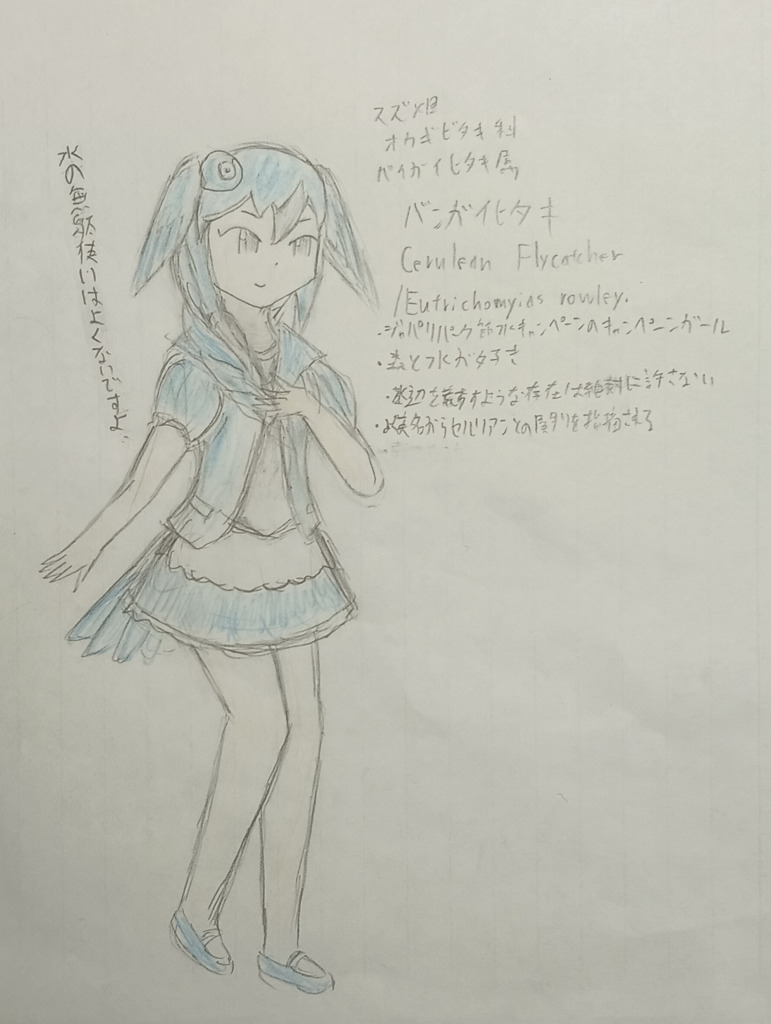 水の無駄使いはよくないですよ、
スズメ目
オウギビタキ科
バンガイヒタキ属
バンガイヒタキ
Cerulean Flycatcher
/Eutrichomyias rowley.
・ジャパリパーク節水キャンペーンのキャンペーンガール
・森と水が好き
・水辺を荒すような存在は絶対に許さない
・英名からセルリアンとの関りを指摘される